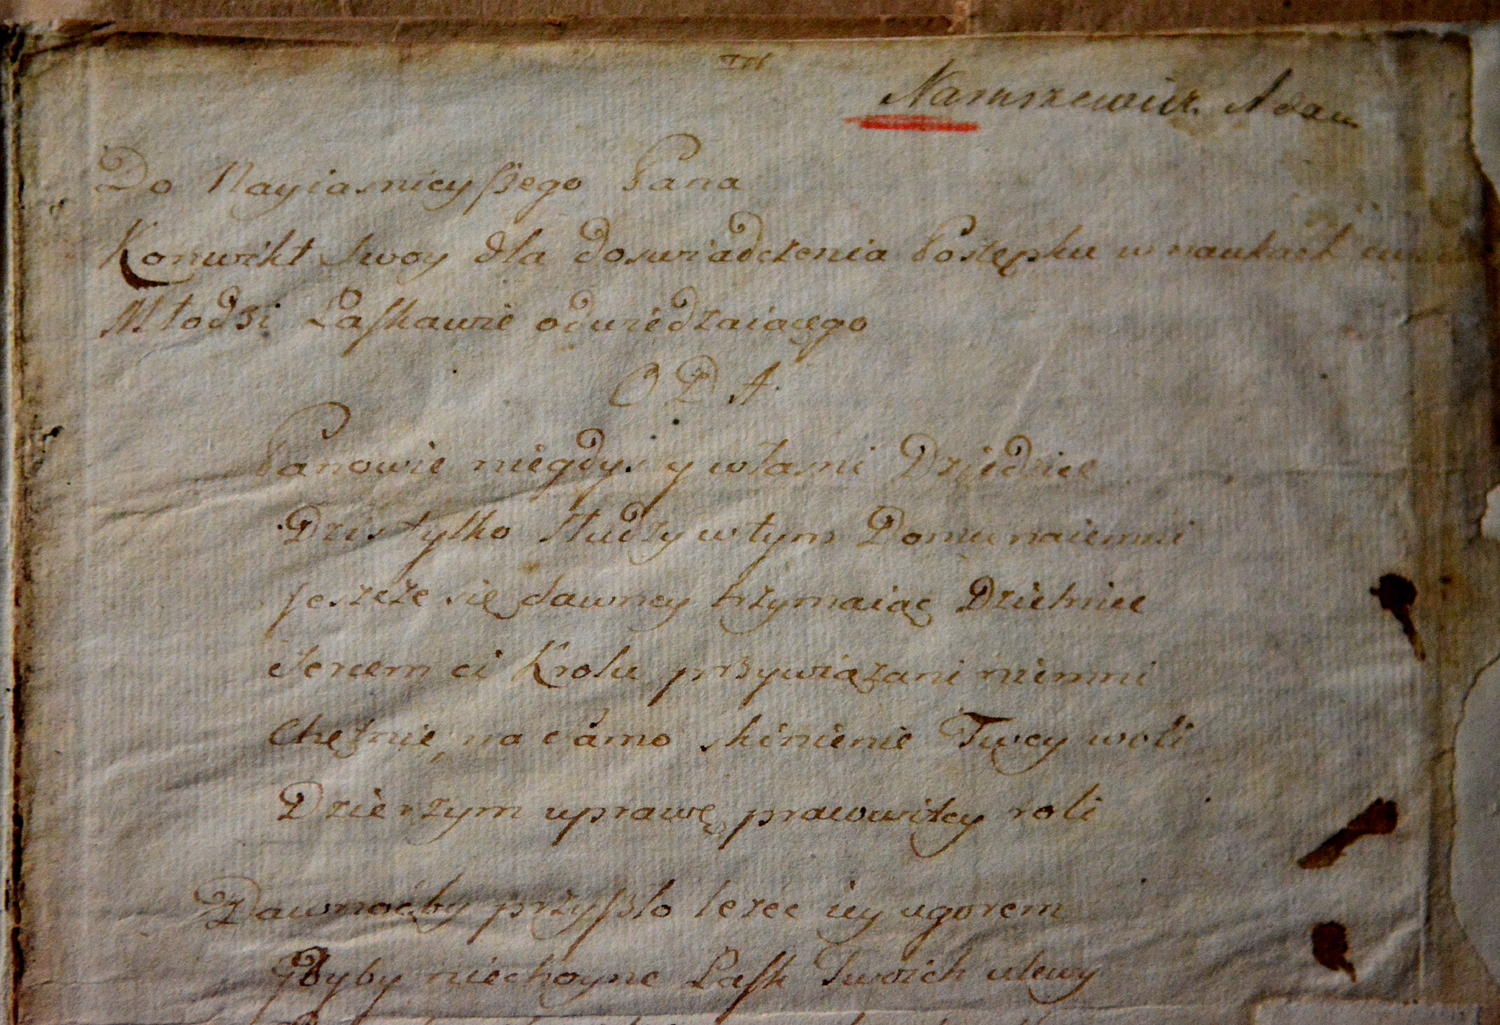 Naruszewicz Adam
Do Nayiasnieyſzego Pana
Konwikt swoy dla doswiadczenia Postępku w naukach
Młodzi Łaſkawie odwiedzaiącego
ODA
Panowie niegdys y własni Dziedzice
Dzis tylko studzy w tym Domu naiemni
Jeszcze się dawney trzymaiąc Dzielnice
Sercem ci Krolu przywiązani niemni
Chętnie, na samo skinienie Twey woli
Dzierzym uprawę prawowitey roli
Dawnoćby przyſzło leżeć iey ugorem
Gdyby niechoyne Łaſk Twoich ulewy